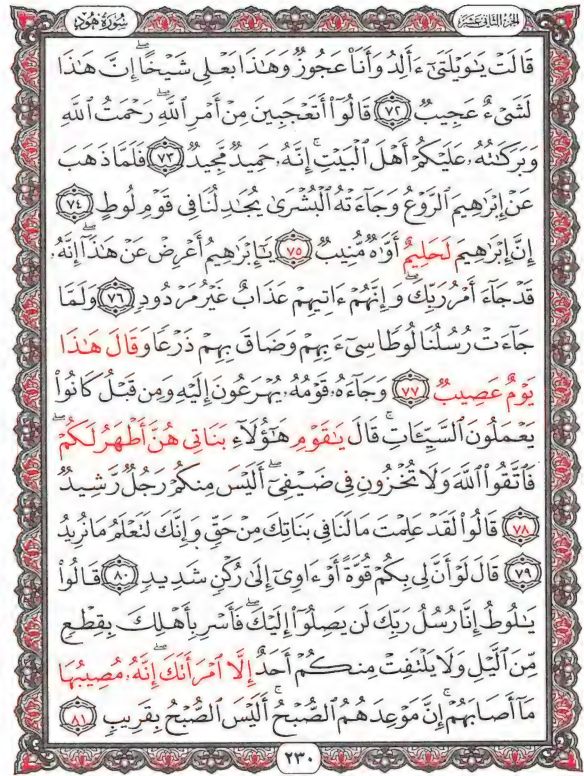 سُورَةُ هُودٍ
الجُزْءُ الثَّانِي عَشَرَ
قَالَتْ يَٰوَيْلَتَىٰٓ ءَأَلِدُ وَأَنَا۠ عَجُوزٌ وَهَٰذَا بَعْلِى شَيْخًا ۖ إِنَّ هَٰذَا
لَشَىْءٌ عَجِيبٌ ٧٢ قَالُوٓا۟ أَتَعْجَبِينَ مِنْ أَمْرِ ٱللَّهِ ۖ رَحْمَتُ ٱللَّهِ
وَبَرَكَٰتُهُۥ عَلَيْكُمْ أَهْلَ ٱلْبَيْتِ ۚ إِنَّهُۥ حَمِيدٌ مَّجِيدٌ ٧٣ فَلَمَّا ذَهَبَ
عَنْ إِبْرَٰهِيمَ ٱلرَّوْعُ وَجَآءَتْهُ ٱلْبُشْرَىٰ يُجَٰدِلُنَا فِى قَوْمِ لُوطٍ ٧٤
إِنَّ إِبْرَٰهِيمَ لَحَلِيمٌ أَوَّٰهٌ مُّنِيبٌ ٧٥ يَٰٓإِبْرَٰهِيمُ أَعْرِضْ عَنْ هَٰذَآ ۖ إِنَّهُۥ
قَدْ جَآءَ أَمْرُ رَبِّكَ ۖ وَإِنَّهُمْ ءَاتِيهِمْ عَذَابٌ غَيْرُ مَرْدُودٍ ٧٦ وَلَمَّا
جَآءَتْ رُسُلُنَا لُوطًا سِىٓءَ بِهِمْ وَضَاقَ بِهِمْ ذَرْعًا وَقَالَ هَٰذَا
يَوْمٌ عَصِيبٌ ٧٧ وَجَآءَهُۥ قَوْمُهُۥ يُهْرَعُونَ إِلَيْهِ وَمِن قَبْلُ كَانُوا۟
يَعْمَلُونَ ٱلسَّيِّـَٔاتِ ۚ قَالَ يَٰقَوْمِ هَٰٓؤُلَآءِ بَنَاتِى هُنَّ أَطْهَرُ لَكُمْ ۖ
فَٱتَّقُوا۟ ٱللَّهَ وَلَا تُخْزُونِ فِى ضَيْفِىٓ ۖ أَلَيْسَ مِنكُمْ رَجُلٌ رَّشِيدٌ
٧٨ قَالُوا۟ لَقَدْ عَلِمْتَ مَا لَنَا فِى بَنَاتِكَ مِنْ حَقٍّ وَإِنَّكَ لَتَعْلَمُ مَا نُرِيدُ
٧٩ قَالَ لَوْ أَنَّ لِى بِكُمْ قُوَّةً أَوْ ءَاوِىٓ إِلَىٰ رُكْنٍ شَدِيدٍ ٨٠ قَالُوا۟
يَٰلُوطُ إِنَّا رُسُلُ رَبِّكَ لَن يَصِلُوٓا۟ إِلَيْكَ ۖ فَأَسْرِ بِأَهْلِكَ بِقِطْعٍ
مِّنَ ٱلَّيْلِ وَلَا يَلْتَفِتْ مِنكُمْ أَحَدٌ إِلَّا ٱمْرَأَتَكَ ۖ إِنَّهُۥ مُصِيبُهَا
مَآ أَصَابَهُمْ ۚ إِنَّ مَوْعِدَهُمُ ٱلصُّبْحُ ۚ أَلَيْسَ ٱلصُّبْحُ بِقَرِيبٍ ٨١
٢٣٠